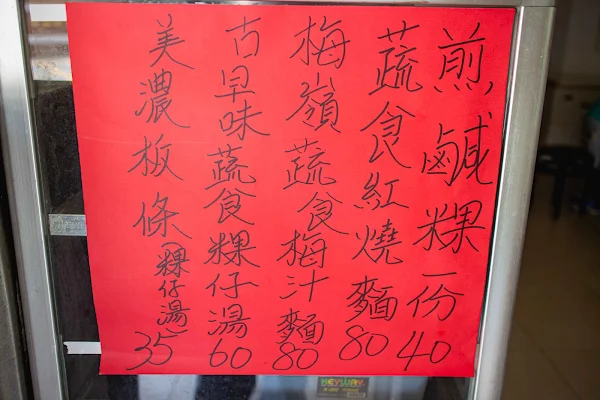 煎鹹粿一份40
蔬食紅燒麵80
梅嶺蔬食梅汁麵80
古早味蔬食粿仔湯60
美濃板條(粿仔湯)35
KEYWAY